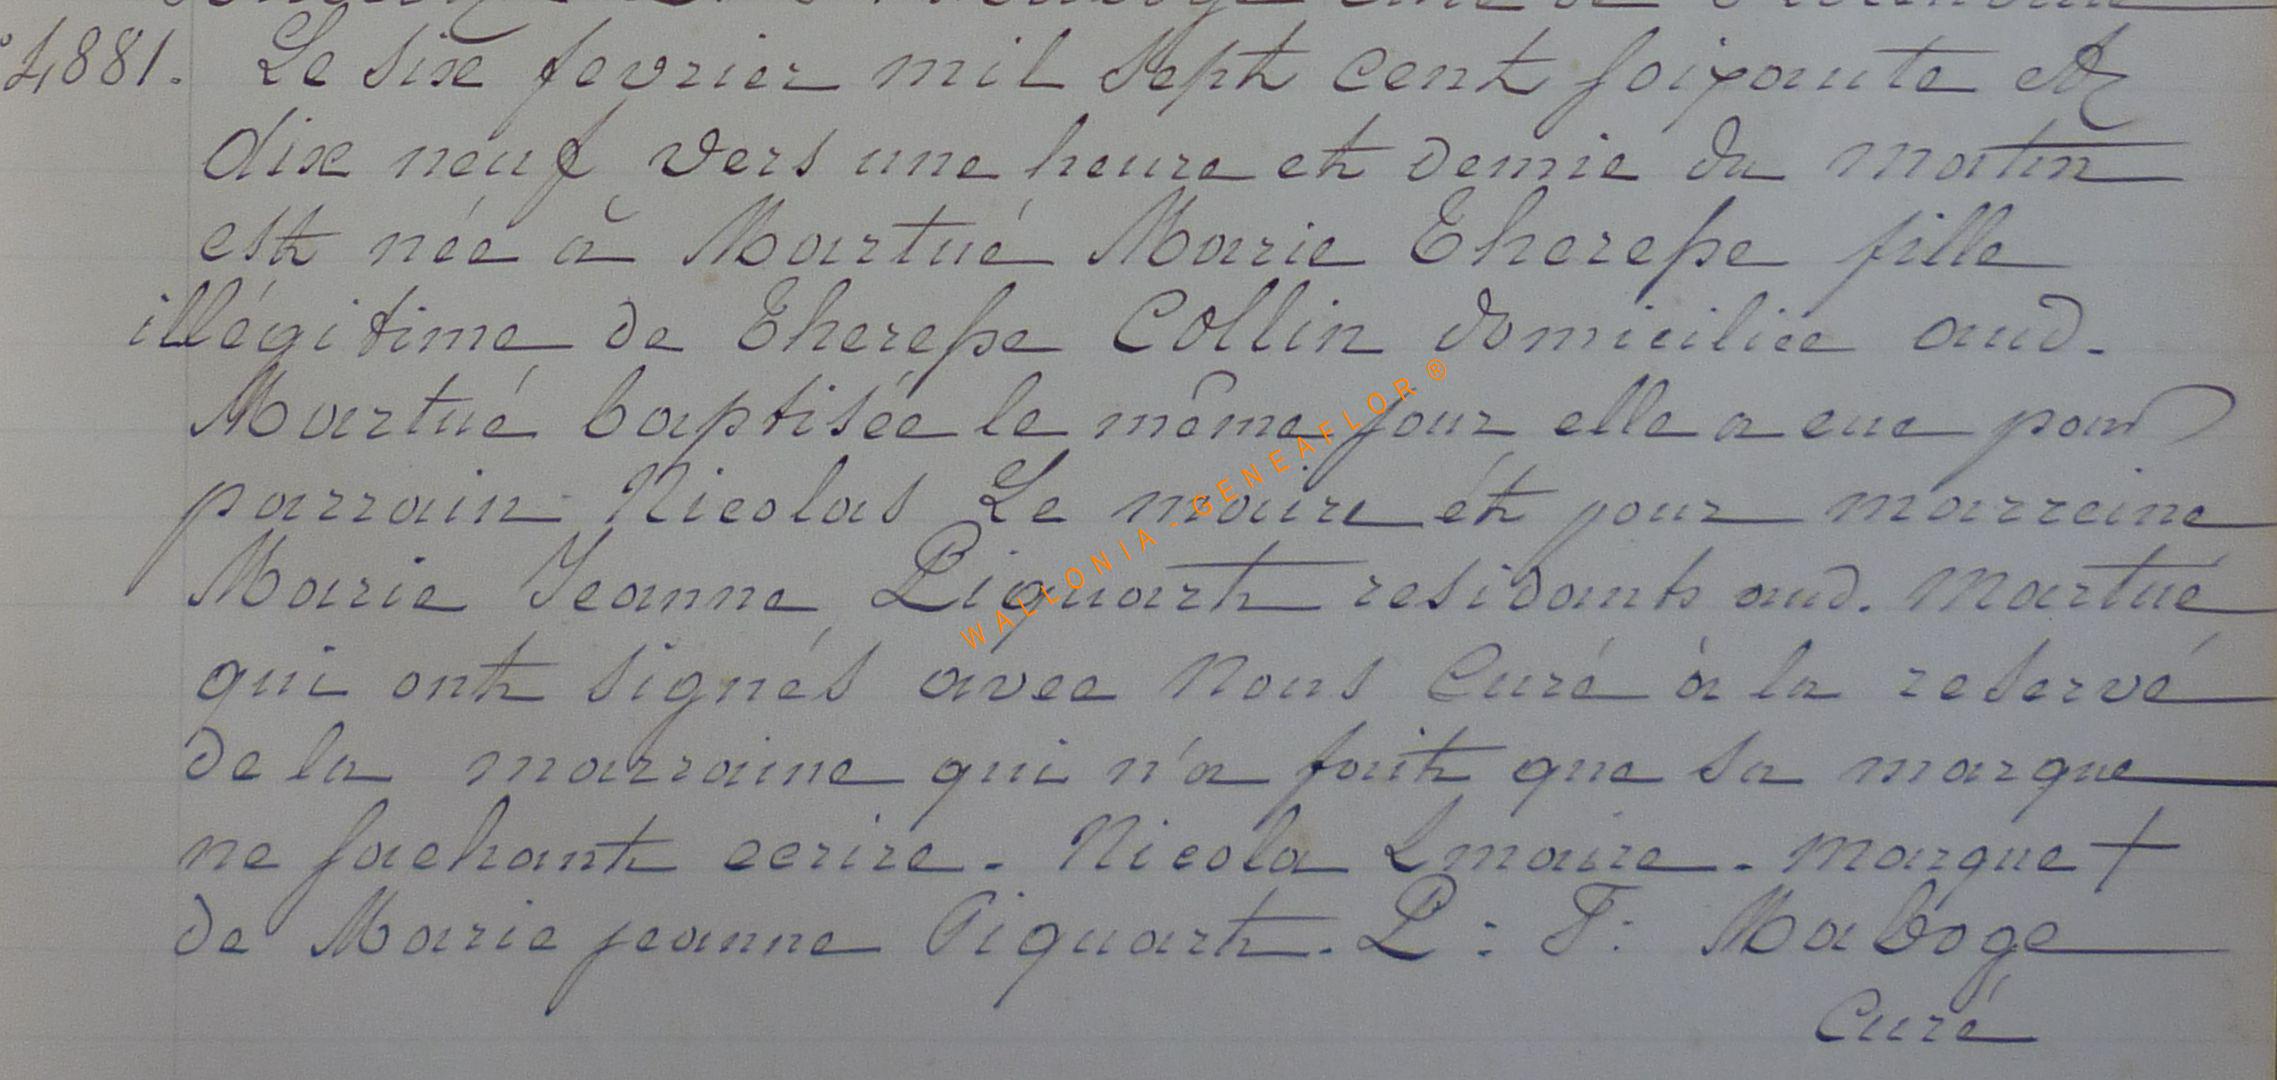 4881. Le six fevrier mil sept cent soixante et
dix neuf vers une heure et demie du matin
est née à Martué Marie Theresse fille
illégitime de Theresse Collin domiciliée aud.
Martué baptisée le même jour elle a eue pour
parrain Nicolas Le maire ét pour marreine
Marie Jeanne Piquart residants aud. Martué
qui ont signés avec Nous Curé à la reservé
de la marraine qui n'a fait que sa marque
ne sachant ecrire. Nicola Lmaire. marque +
de Marie jeanne Piquart. P: F: Maboge
Curé
WALLONIA-GENEAFLOR ®